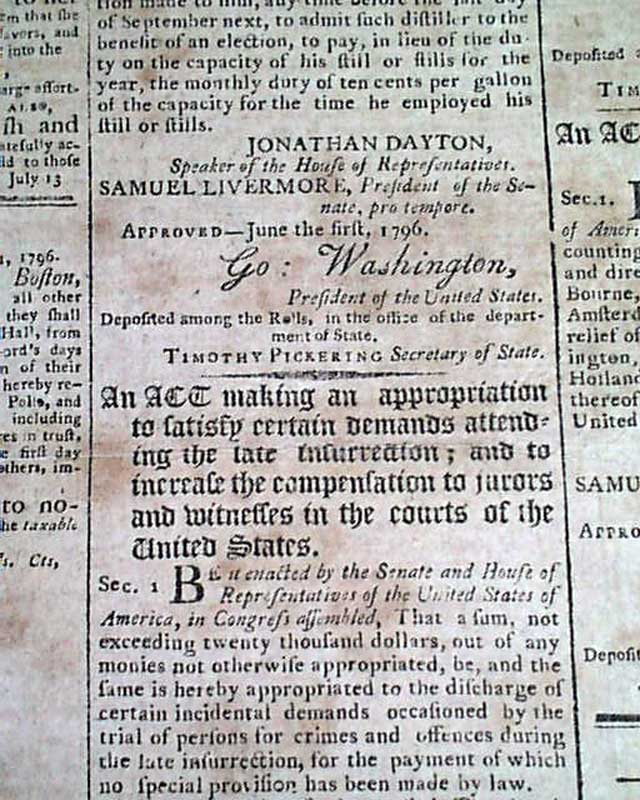 em that she
favors, and
into the
arge effort-
ALSO,
sh and
atefully ac-
ld to those
July 13
1, 1796.
Boſton,
all other
they ſhall
Hall, from
ord's days
n of their
hereby re-
Polls, and
including
res in truſt.
e firſt day
others, im-
to no-
he taxable
Cts,
of September next, to admit ſuch diſtiller to the
benefit of an election, to pay, in lieu of the du-
ty on the capacity of his ſtill or ſtills for the
year, the monthly duty of ten cents per gallon
of the capacity for the time he employed his
ſtill or ſtills.
JONATHAN DAYTON,
Speaker of the Houſe of Repreſentatives.
SAMUEL LIVERMORE, Preſident of the Se-
nate, pro tempore.
APPROVED—June the firſt, 1796.
Go: Waſhington,
Preſident of the United States.
Depoſited among the Rolls, in the office of the depart-
ment of State.
TIMOTHY PICKERING Secretary of State.
An ACT making an appropriation
to ſatisfy certain demands attend-
ing the late inſurrection; and to
increaſe the compenſation to jurors
and witneſſes in the courts of the
United States.
Sec. 1 BE it enacted by the Senate and Houſe of
Repreſentatives of the United States of
America, in Congreſs aſſembled, That a ſum, not
exceeding twenty thouſand dollars, out of any
monies not otherwiſe appropriated, be, and the
ſame is hereby appropriated to the diſcharge of
certain incidental demands occaſioned by the
trial of perſons for crimes and offences during
the late inſurrection, for the payment of which
no ſpecial proviſion has been made by law.
Depoſited a
TIM
An AC
Sec. 1.
of Ameri
counting
and dire
Bourne,
Amſterd
relief of
ington,
Hollan
thereof
United
SAMU
APPRO
Depoſit